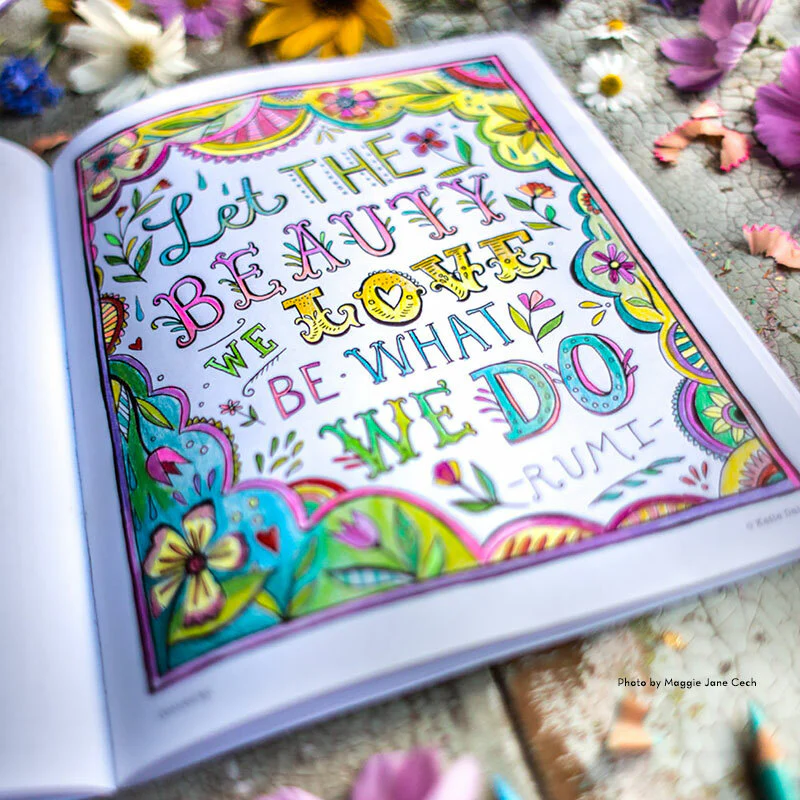 Let THE
BEAUTY
WE LOVE
BE · WHAT
WE DO
-RUMI-
Photo by Maggie Jane Cech